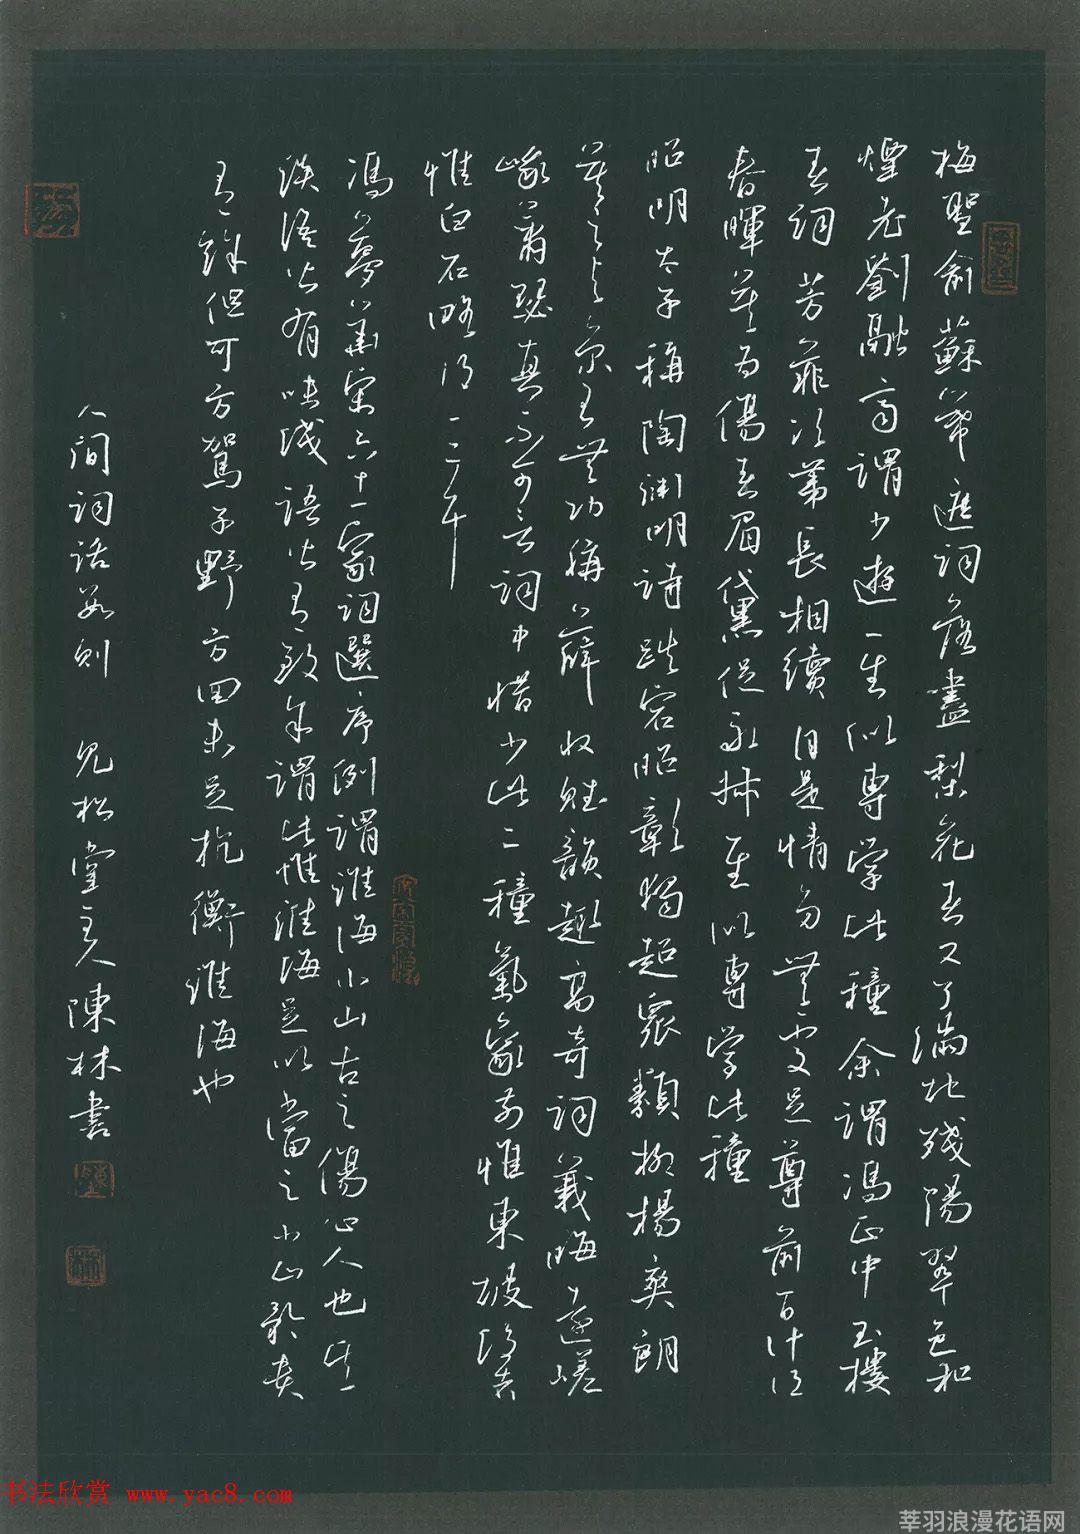 梅聖俞蘇幕遮詞落盡梨花春又了滿地殘陽翠色和
煙老劉融齋謂少遊一生似專學此種余謂馮正中玉樓
春詞芳菲次第長相續自是情多無處足尊前百計得
春暉莫為傷春眉黛促永叔一生似專學此種
昭明太子稱陶淵明詩跌宕昭彰獨超眾類抑揚爽朗
莫之與京王無功稱薛收賦韻趣高奇詞義晦遠嵯
峨蕭瑟真不可言詞中惜少此二種氣象前惟東坡後者
惟白石略得一二耳
馮夢華宋六十一家詞選序例謂淮海小山古之傷心人也其
淡語皆有味淺語皆有致余謂此惟淮海足以當之小山矜貴
有餘但可方駕子野方回未足抗衡淮海也
人間詞話數則 見松堂主人陳林書
书法欣赏 www.yac8.com
莘羽浪漫花语网